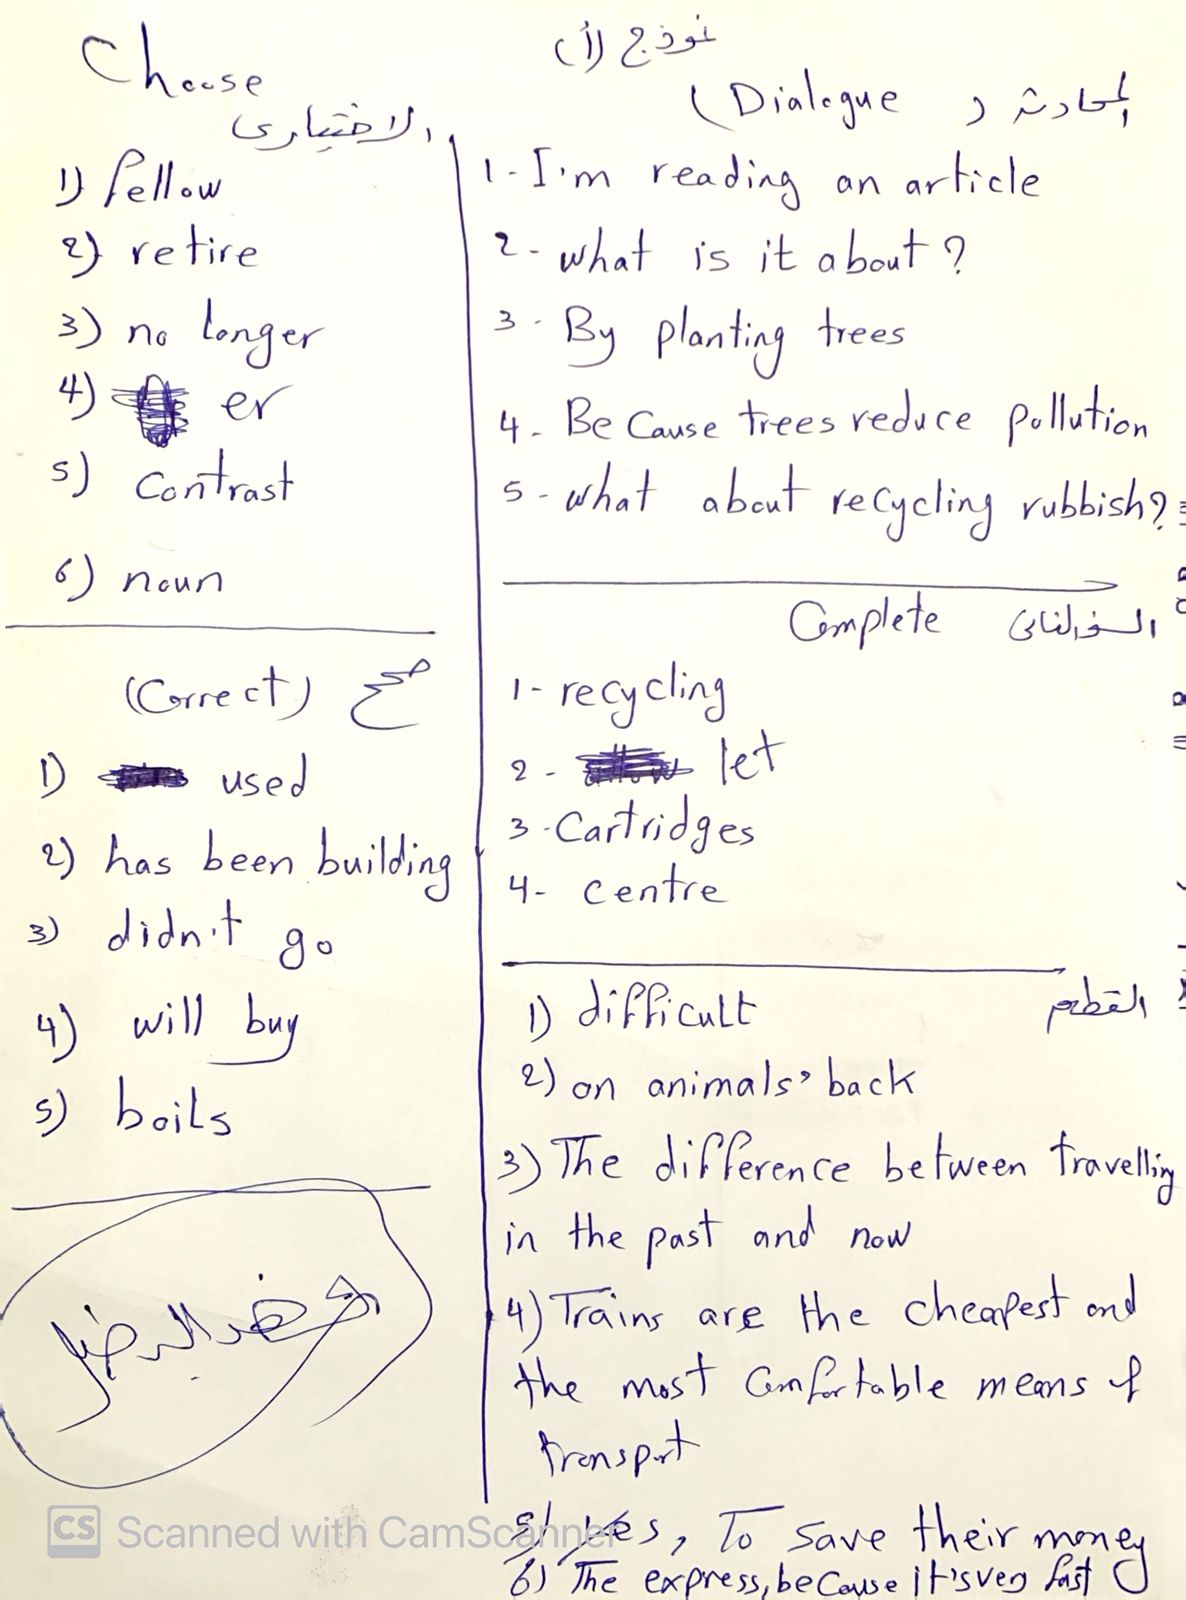 نموذج (أ)
المحادثة (Dialogue
1- I'm reading an article
2- what is it about?
3- By planting trees
4- Because trees reduce pollution
5- what about recycling rubbish?
Complete
1- recycling
2- let
3- Cartridges
4- centre
القطعه
1) difficult
2) on animals' back
3) The difference between travelling
in the past and now
4) Trains are the cheapest and
the most comfortable means of
transport
5) yes, To save their money
6) The express, because it's very fast
Choose
الاختيارى
1) fellow
2) retire
3) no longer
4) er
5) contrast
6) noun
(Correct) صحح
1) used
2) has been building
3) didn't go
4) will buy
5) boils
CS Scanned with CamScanner